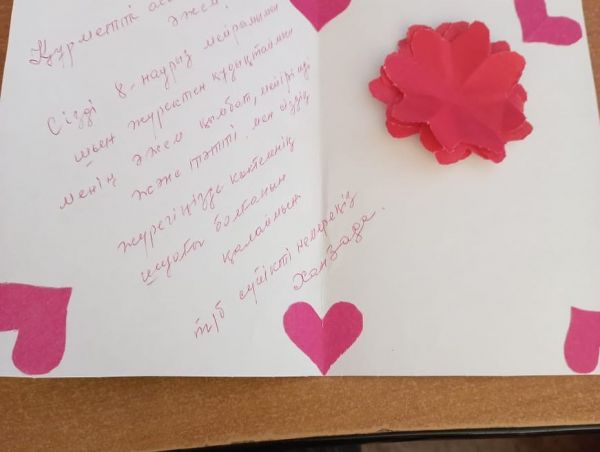 Құрметті
әжем
Сізді 8-наурыз мейрамымен
шын жүректен құттықтаймын
менің әжем қымбат, мейірімді
және тәтті. мен сіздің
жүрегіңізде көктемнің
шуағы болғанын
қалаймын.
сүйікті немереңіз
Ханзада.